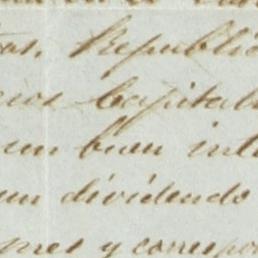 tas, Republic
cios Capital
un buen int
un dividendo
mes y correspon